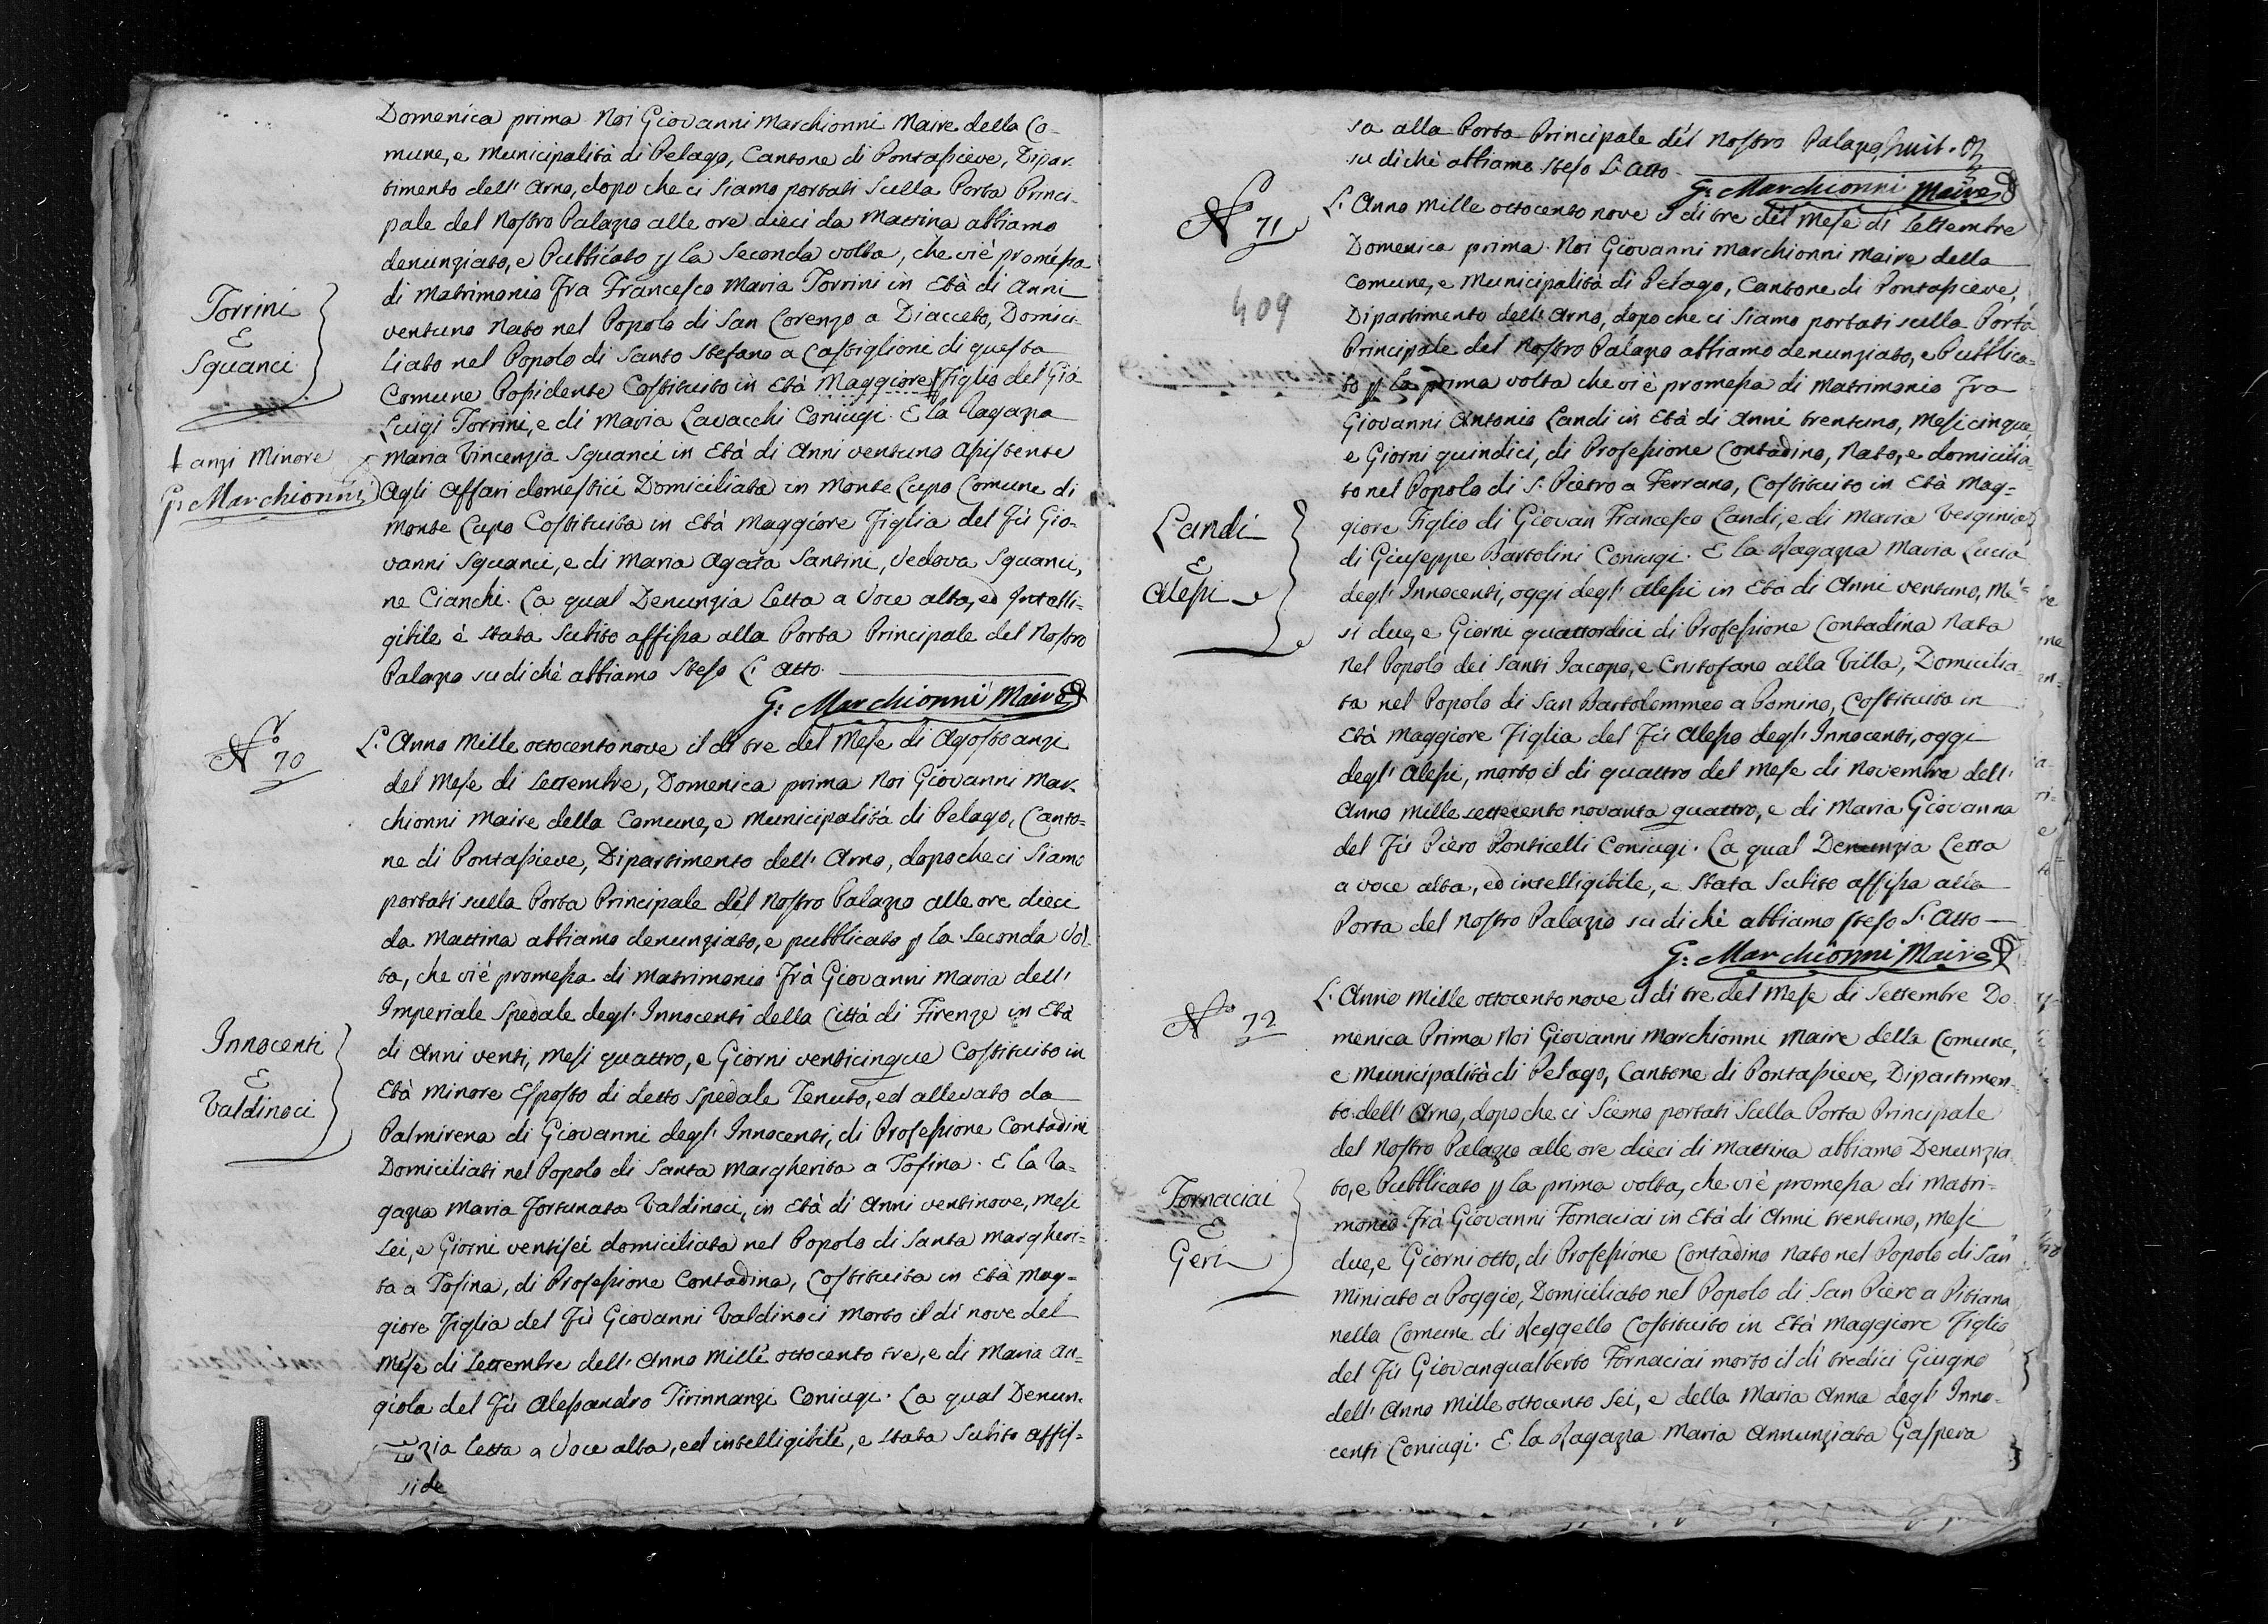 Domenica prima Noi Giovanni Marchionni Maire della Co-
mune, e Municipalità di Pelago, Cantone di Pontassieve, Dipar-
timento dell' Arno, dopo che ci Siamo portati Sulla Porta Princi-
pale del Nostro Palazzo alle ore dieci da Mattina abbiamo
denunziato, e Pubblicato p la Seconda volta, che vi è promessa
di Matrimonio fra Francesco Maria Torrini in Età di Anni
ventuno Nato nel Popolo di San Lorenzo a Diacceto, Domici-
liato nel Popolo di Santo Stefano a Castiglioni di questa
Comune Possidente Costituito in Età Maggiore figlio del Già
Luigi Torrini, e di Maria Lavacchi Coniugi. E la Ragazza
Maria Vincenzia Squanci in Età di Anni ventuno Assistente
Agli Affari domestici Domiciliata in Monte Lupo Comune di
Monte Lupo Costituita in Età Maggiore Figlia del Fù Gio-
vanni Squanci, e di Maria Agata Santini, Vedova Squanci,
ne Cianchi. La qual Denunzia Letta a Voce alta, ed Intelli-
gibile è Stata Subito affissa alla Porta Principale del Nostro
Palazzo su di chè abbiamo Steso L' Atto.
G: Marchionni Maire
Torrini
E
Squanci
anzi Minore
G: Marchionni
No 70
L' Anno Mille ottocento nove il di tre del Mese di Agosto anzi
del Mese di Settembre, Domenica prima Noi Giovanni Mar-
chionni Maire della Comune, e Municipalità di Pelago, Canto-
ne di Pontassieve, Dipartimento dell' Arno, dopo che ci Siamo
portati sulla Porta Principale del Nostro Palazzo alle ore dieci
da Mattina abbiamo denunziato, e pubblicato p la Seconda Vol-
ta, che vi è promessa di Matrimonio Frà Giovanni Maria dell'
Imperiale Spedale degl' Innocenti della Città di Firenze in Età
di Anni venti, Mesi quattro, e Giorni venticinque Costituito in
Età Minore Esposto di detto Spedale Tenuto, ed allevato da
Palmirena di Giovanni degl' Innocenti, di Professione Contadini
Domiciliati nel Popolo di Santa Margherita a Tosina. E la Ra-
gazza Maria Fortunata Valdinoci, in Età di Anni ventinove, Mesi
Sei, e Giorni ventisei domiciliata nel Popolo di Santa Margheri-
ta a Tosina, di Professione Contadina, Costituita in Età Mag-
giore Figlia del Fù Giovanni Valdinoci Morto il di nove del
Mese di Settembre dell' Anno Mille ottocento tre, e di Maria An-
giola del Fù Alessandro Tirinnanzi Coniugi. La qual Denun-
zia Letta a Voce alta, ed intelligibile, e Stata Subito affis-
Innocenti
E
Valdinoci
sa alla Porta Principale del Nostro Palazzo
su di chè abbiamo Steso L' Atto.
G: Marchionni Maire
No 71
409
L' Anno Mille ottocento nove il di tre del Mese di Settembre
Domenica prima. Noi Giovanni Marchionni Maire della
Comune, e Municipalità di Pelago, Cantone di Pontassieve,
Dipartimento dell' Arno, dopo che ci Siamo portati sulla Porta
Principale del Nostro Palazzo abbiamo denunziato, e Pubblica-
to p la prima volta che vi è promessa di Matrimonio Fra
Giovanni Antonio Landi in Età di Anni trentuno, Mesi cinque,
e Giorni quindici, di Professione Contadino, Nato, e domicilia-
to nel Popolo di S. Pietro a Ferrano, Costituito in Età Mag-
giore Figlio di Giovan Francesco Landi, e di Maria Verginia
di Giuseppe Bartolini Coniugi. E la Ragazza Maria Lucia
degl' Innocenti, oggi degl' Alessi in Età di Anni ventuno, Me-
si due, e Giorni quattordici di Professione Contadina Nata
Nel Popolo dei Santi Jacopo, e Cristofano alla Villa, Domicilia-
ta nel Popolo di San Bartolommeo a Pomino, Costituita in
Età Maggiore Figlia del Fù Alesso degl' Innocenti, oggi
degl' Alessi, morto il di quattro del Mese di Novembre dell'
Anno Mille settecento novanta quattro, e di Maria Giovanna
del Fù Piero Ponticelli Coniugi. La qual Denunzia Letta
a voce alta, ed intelligibile, e Stata Subito affissa alla
Porta del Nostro Palazzo su di chè abbiamo steso L' Atto
G: Marchionni Maire
Landi
E
Alessi
No 72
L' Anno Mille ottocento nove il di tre del Mese di Settembre Do-
menica Prima Noi Giovanni Marchionni Maire della Comune,
e Municipalità di Pelago, Cantone di Pontassieve, Dipartimen-
to dell' Arno, dopo che ci Siemo portati Sulla Porta Principale
del Nostro Palazzo alle ore dieci di Mattina abbiamo Denunzia-
to, e Pubblicato p la prima volta, che vi è promessa di Matri-
monio Frà Giovanni Fornaciai in Età di Anni trentuno, Mesi
due, e Giorni otto, di Professione Contadino Nato nel Popolo di San
Miniato a Poggio, Domiciliato nel Popolo di San Piero a Pitiana
nella Comune di Reggello Costituito in Età Maggiore Figlio
del Fù Giovangualberto Fornaciai morto il di tredici Giugno
dell' Anno Mille ottocento Sei, e della Maria Anna degl' Inno-
centi Coniugi. E la Ragazza Maria Annunziata Gaspera
Fornaciai
E
Geri